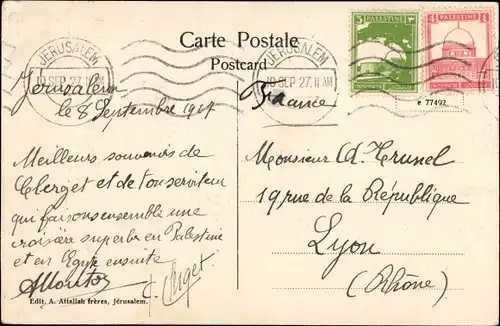 Carte Postale
Postcard
JERUSALEM
10 SEP. 27. 11 AM
JERUSALEM
10 SEP. 27. 11 AM
3 PALESTINE ٣
4 PALESTINE
e 77492
Jerusalem
le 8 Septembre 1927
France
Meilleurs souvenirs de
Clerget et de ton serviteur
qui faisons ensemble une
croisière superbe en Palestine
et en Egypte ensuite
C. Clerget
Monsieur A. Trunel
19 rue de la République
Lyon
(Rhône)
Edit. A. Attallah frères, Jérusalem.